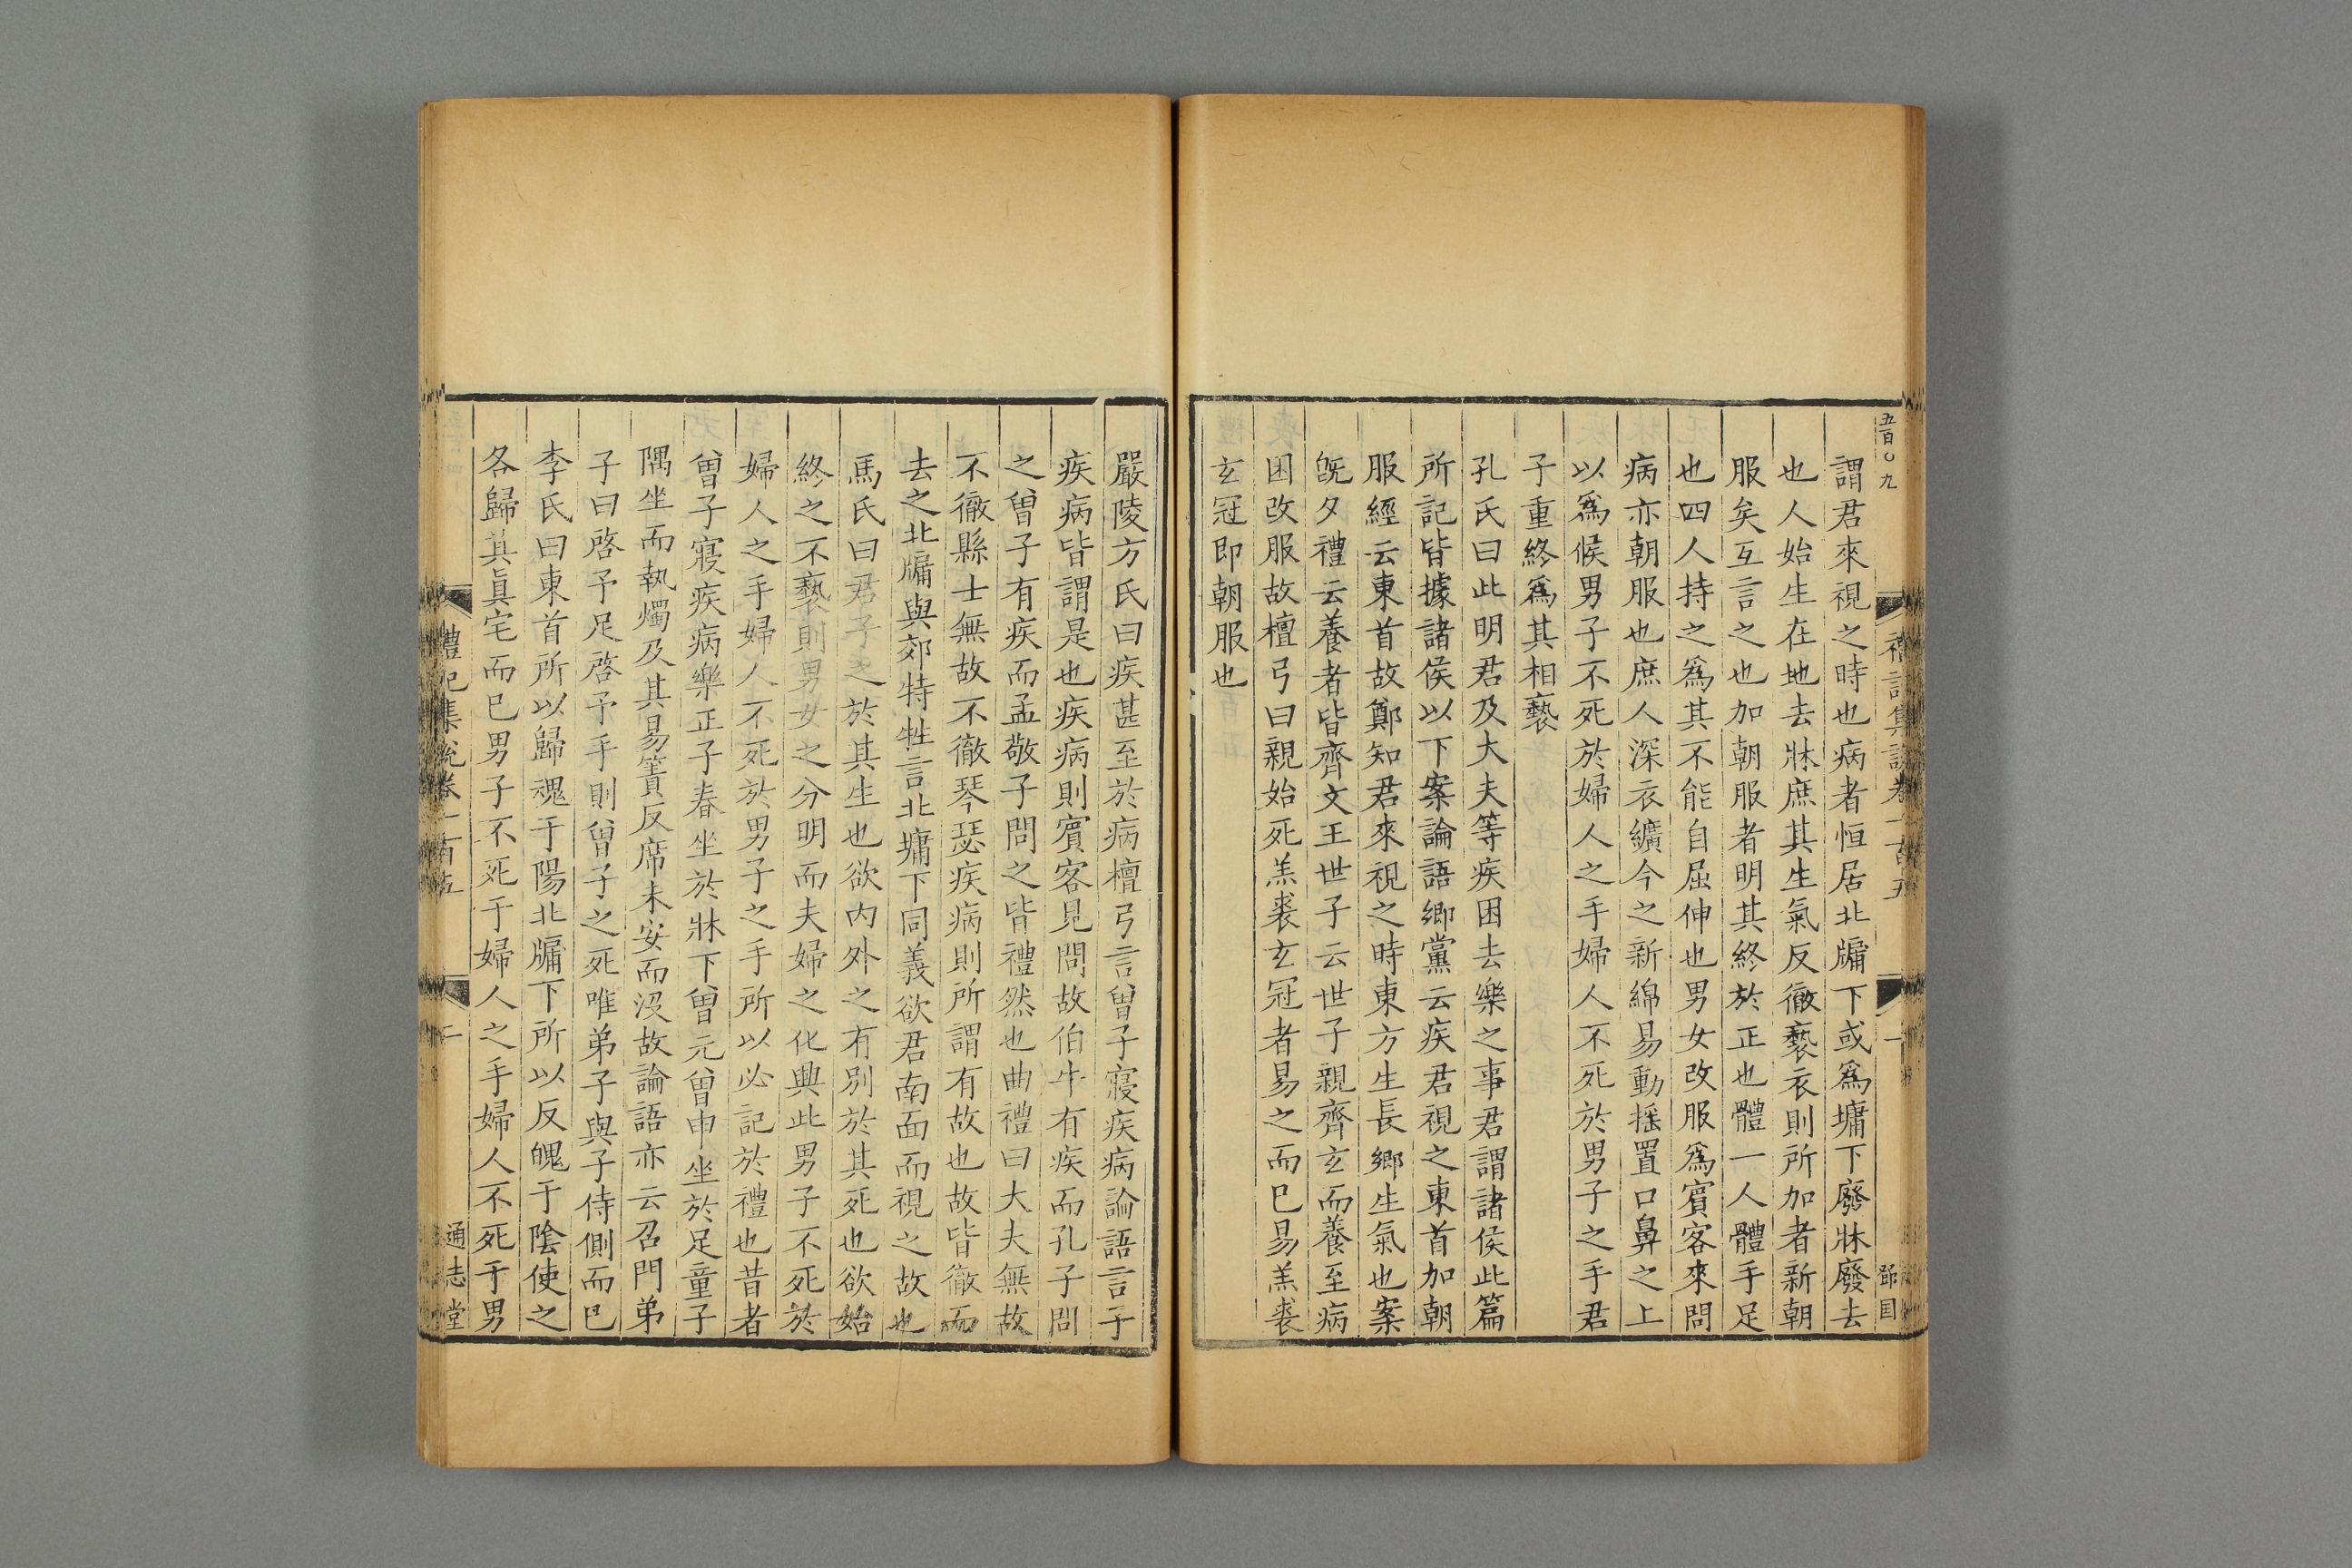 五百〇九
禮記集說卷一百五
一
謂君來視之時也病者恒居北牖下或爲墉下廢牀廢去
也人始生在地去牀庶其生氣反徹褻衣則所加者新朝
服矣互言之也加朝服者明其終於正也體一人體手足
也四人持之爲其不能自屈伸也男女改服爲賓客來問
病亦朝服也庶人深衣纊今之新綿易動揺置口鼻之上
以爲候男子不死於婦人之手婦人不死於男子之手君
子重終爲其相褻
孔氏曰此明君及大夫等疾困去樂之事君謂諸侯此篇
所記皆據諸侯以下案論語鄉黨云疾君視之東首加朝
服經云東首故鄭知君來視之時東方生長鄉生氣也案
旣夕禮云養者皆齊文王世子云世子親齊玄而養至病
困改服故檀弓曰親始死羔裘玄冠者易之而巳易羔裘
玄冠即朝服也
嚴陵方氏曰疾甚至於病檀弓言曾子寢疾病論語言子
疾病皆謂是也疾病則賓客見問故伯牛有疾而孔子問
之曾子有疾而孟敬子問之皆禮然也曲禮曰大夫無故
不徹縣士無故不徹琴瑟疾病則所謂有故也故皆徹而
去之北牖與郊特牲言北墉下同義欲君南面而視之故也
馬氏曰君子之於其生也欲内外之有別於其死也欲始
終之不褻則男女之分明而夫婦之化興此男子不死於
婦人之手婦人不死於男子之手所以必記於禮也昔者
曾子寢疾病樂正子春坐於牀下曾元曾申坐於足童子
隅坐而執燭及其易簀反席未安而沒故論語亦云召門弟
子曰啓予足啓予手則曾子之死唯弟子與子侍側而巳
李氏曰東首所以歸魂于陽北牖下所以反魄于陰使之
各歸其眞宅而巳男子不死于婦人之手婦人不死于男
禮記集說卷一百五
二
通志堂